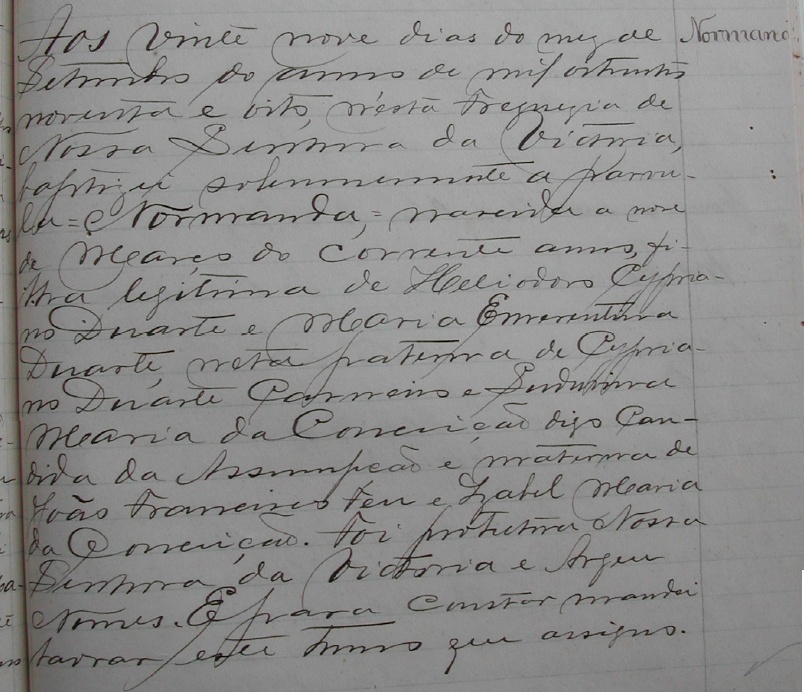 Aos vinte nove dias do mez de
Normand
Setembro do anno de mil oitocentos
noventa e oito, n'esta Freguezia de
Nossa Senhora da Victoria,
baptizei solemnemente a parvu-
la = Normanda, = nascida a nove
de Março do corrente anno, fi-
lha legitima de Heliodoro Cypria-
no Duarte e Maria Emerentina
Duarte, neta paterna de Cypria-
no Duarte Carneiro e
Maria da Conceição digo Can-
dida da Assumpção e materna de
João Francisco Feu e Izabel Maria
da Conceição. Foi protectora Nossa
Senhora da Victoria e Argeu
Nomes. E para constar mandei
lavrar este termo que assigno.